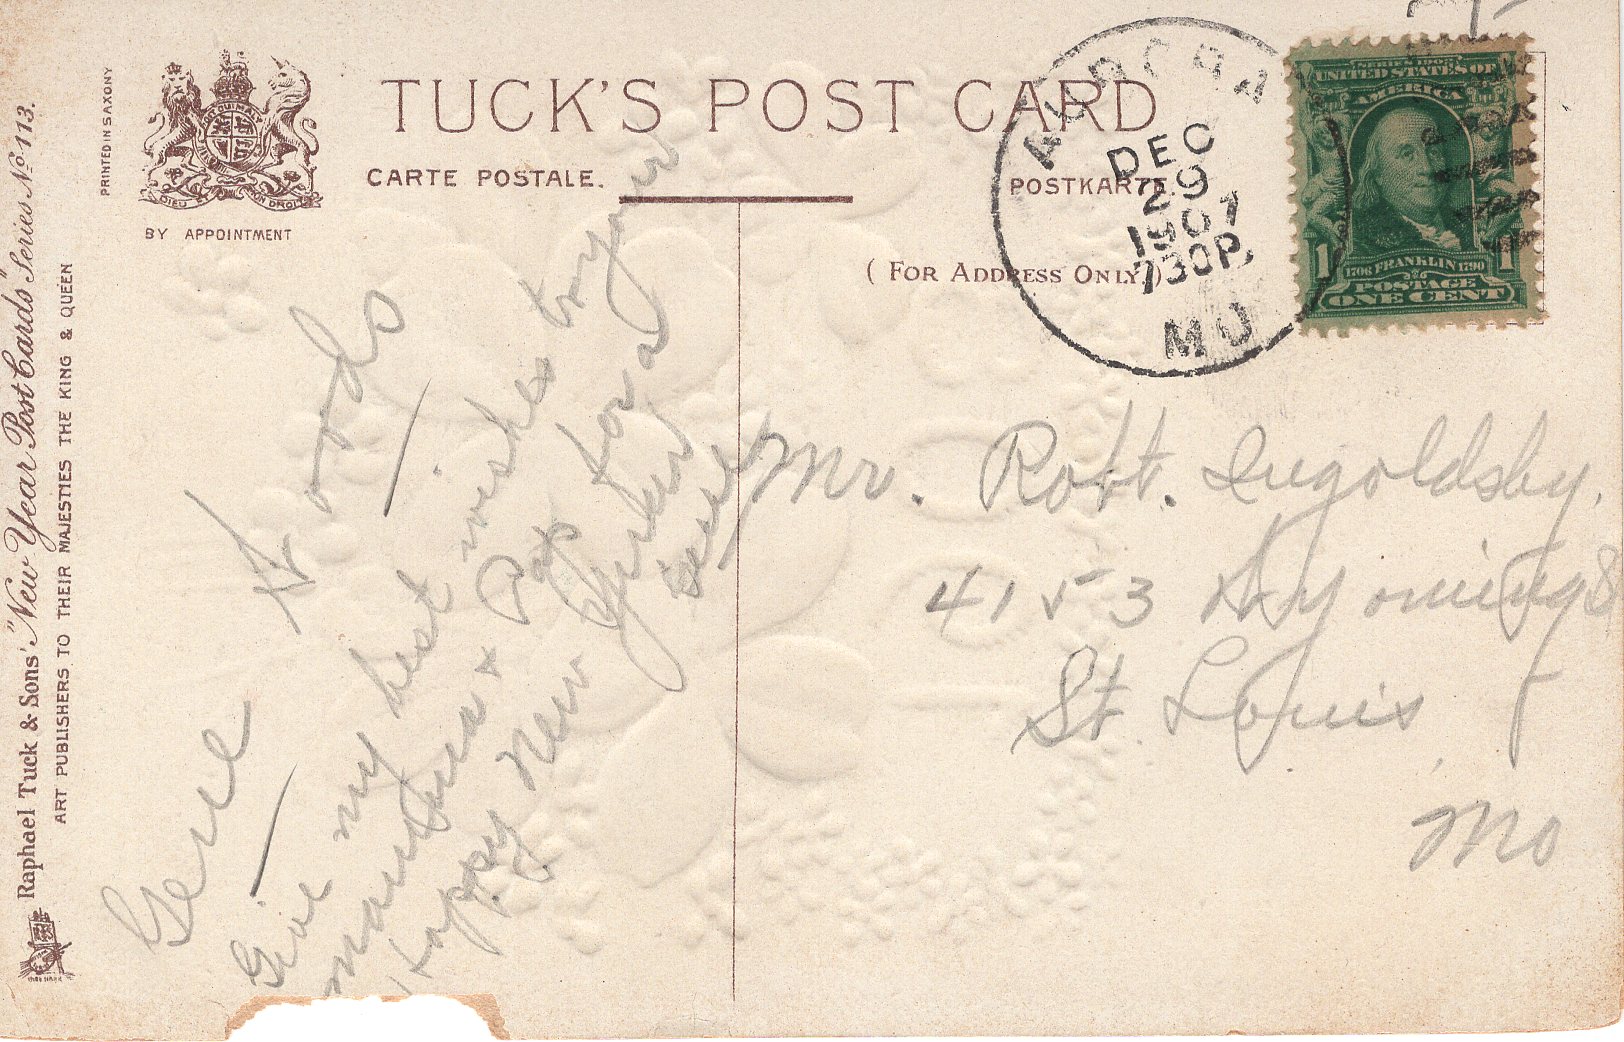 TUCK'S POST CARD
CARTE POSTALE.
POSTKARTE.
(FOR ADDRESS ONLY.)
BY APPOINTMENT
DIEU ET MON DROIT
PRINTED IN SAXONY
Raphael Tuck & Sons' "New Year Post Cards" Series No 113.
ART PUBLISHERS TO THEIR MAJESTIES THE KING & QUEEN
AURORA
DEC
29
1907
730P.
MO
SERIES 1902
UNITED STATES OF
AMERICA
1706 FRANKLIN 1790
1 1
POSTAGE
ONE CENT
Mr. Robt. Ingoldsby,
4153 Wyoming S
St. Louis
Mo
Gene Woods
Give my best wishes to your
mamma & Papa for a
Happy New Year